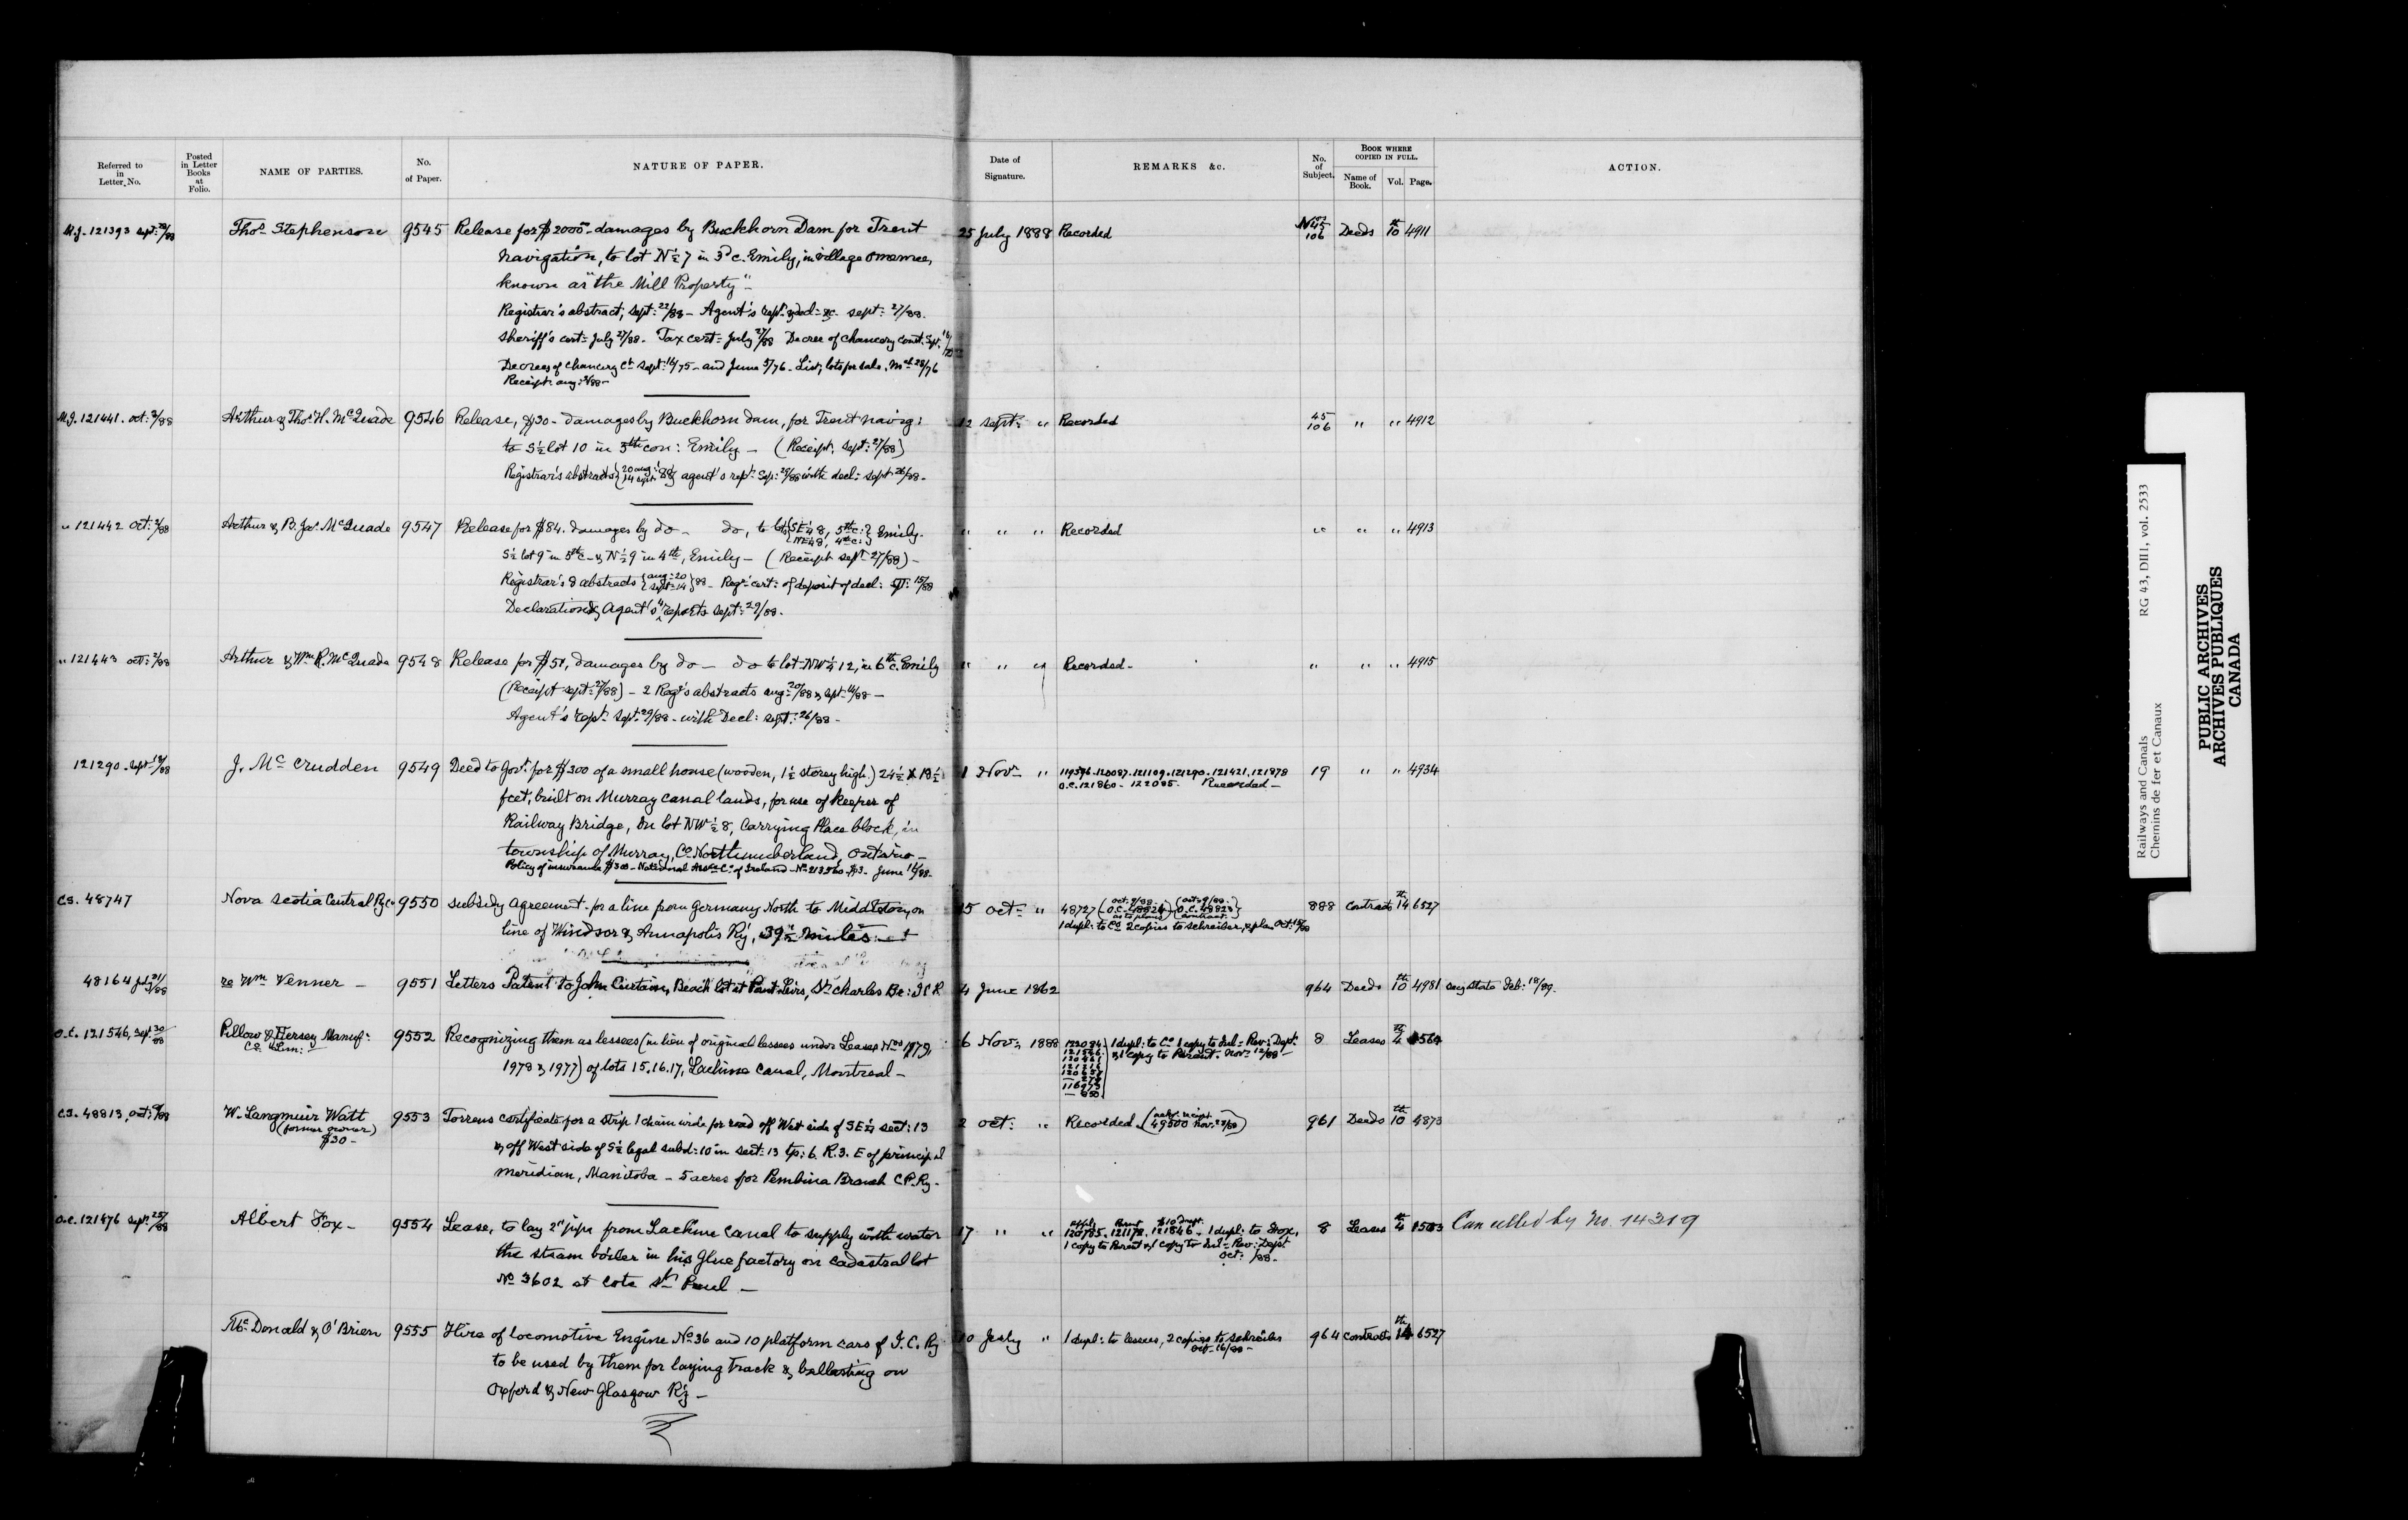 Referred to in Letter No.
Posted in Letter Books at Folio.
NAME OF PARTIES.
No. of Paper.
NATURE OF PAPER.
Date of Signature.
REMARKS &c.
No. of Subject.
BOOK WHERE COPIED IN FULL.
Name of Book.
Vol.
Page.
ACTION.
M.J. 121393 Sept: 28/88 Thos. Stephenson 9545 Release for $2000 - damages by Buckhorn Dam for Trent 25 July 1888 Recorded 45 106 Deeds 10th 4911
Navigation, to lot N½ 7 in 3d c. Emily, in village Omemee,
known as "the Mill Property" -
Registrar's abstract, Sept: 22/88 - Agent's rept. & decl: &c. Sept: 27/88.
Sheriff's cert: July 27/88. Tax cert: July 27/88 Decree of Chancery Court: Sept:
Decrees of Chancery Ct. Sept: 16/75 - and June 5/76 - List, lots for sale, Mch 28/76
Receipt: Aug: /88 -
M.J. 121441. Oct: 2/88 Arthur & Thos. H. McQuade 9546 Release, $30 - damages by Buckhorn dam, for Trent navig: 12 Sept: " Recorded 45 106 " " 4912
to S½ lot 10 in 5th con: Emily - (Receipt, Sept: 27/88)
Registrar's abstracts {20 Aug: 14 Sept: 88} agent's rept: Sep: 29/88 with decl: Sept: 26/88 -
" 121442 Oct: 2/88 Arthur & B. Jas. McQuade 9547 Release for $84. damages by do - do, to lots {SE¼ 8, 5th c: NE¼ 8, 4th c:} Emily. " " " Recorded " " " 4913
S½ lot 9 in 5th c - & N½ 9 in 4th, Emily - (Receipt Sept 27/88) -
Registrar's 8 abstracts {Aug: 20 Sept: 14} 88 - Regr: cert: of deposit of decl: Spt: 15/88
Declarations & Agent's 4 reports Sept: 29/88.
" 121443 Oct: 2/88 Arthur & Wm. R. McQuade 9548 Release for $51, damages by do - do to lot NW¼ 12, in 6th c. Emily " " " Recorded - " " " 4915
(Receipt Sept: 27/88) - 2 Regr's abstracts Aug: 20/88 & Sept: 14/88 -
Agent's rept: Sept: 29/88 - with Decl: Sept: 26/88 -
121290 - Sept: 19/88 J. McCrudden 9549 Deed to Govt. for $300 of a small house (wooden, 1½ storey high.) 24½ X 18½ 1 Novr " 119396 - 120087 - 121109 - 121290 - 121421 - 121878 19 " " 4934
O.C. 121860 - 122085. Recorded -
feet, built on Murray Canal lands, for use of keeper of
Railway Bridge, on lot NW½ 8, Carrying Place block, in
township of Murray, Co. Northumberland, Ontario -
Policy of insurance $300 - National Assce Co. of Ireland - No. 213560 $3 - June 16/88 -
C.S. 48747 Nova Scotia Central Ry Co 9550 Subsidy Agreement for a line from Germany North to Middleton, on 15 Oct: " 48727 888 Contracts 14th 6527
1 dupl: to Co 2 copies to Schreiber, & plan Oct: 18/88
line of Windsor & Annapolis Ry, 39½ miles
48164 July 31/88 re Wm. Venner - 9551 Letters Patent to John Curtain, Beach lot at Point Levis, St. Charles Br: I.C.R. 4 June 1862 964 Deeds 10th 4981 Feb: 18/89.
O.C. 121546, Sept: 30/88 Pillow & Hersey Manuf: Co. Lim: 9552 Recognizing them as lessees (in lieu of original lessees under Leases Nos 1979, 6 Nov: 1888 122084 1 dupl: to Co. 1 copy to Inl: Rev: Dept. 8 Leases 4th 1564
& 1 copy to Parent - Nov: 12/88 -
1978 & 1977) of lots 15.16.17, Lachine Canal, Montreal -
C.S. 48813, Oct: 9/88 W. Langmuir Watt (former owner) $30 - 9553 Torrens certificate for a strip 1 chain wide for road off West side of SE¼ sect: 13 2 Oct: " Recorded (49500 Nov. 29/88) 961 Deeds 10th 4873
& off West side of S½ legal subd: 10 in sect: 13 tp: 6. R. 3. E of principal
meridian, Manitoba - 5 acres for Pembina Branch C.P.Ry -
O.C. 121476 Sept. 25/88 Albert Fox - 9554 Lease, to lay 2" pipe from Lachine Canal to supply with water 17 " " 120785 - 121178 - 121846 - 1 dupl: to Fox, 8 Leases 4th 1503 Cancelled by No. 14319
1 copy to Parent & 1 copy to Inl: Rev: Dept.
Oct: /88 -
the steam boiler in his Glue factory on cadastral lot
No. 3602 at Cote St. Paul -
McDonald & O'Brien 9555 Hire of locomotive Engine No. 36 and 10 platform cars of I.C. Ry 10 July " 1 dupl: to lessees, 2 copies to Schreiber 964 Contracts 14th 6527
Oct: 16/88 -
to be used by them for laying track & ballasting on
Oxford & New Glasgow Ry -
Railways and Canals RG 43, DII1, vol. 2533
Chemins de fer et Canaux
PUBLIC ARCHIVES
ARCHIVES PUBLIQUES
CANADA